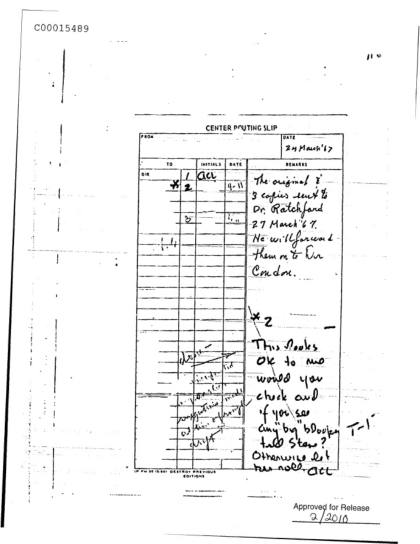 C00015489
CENTER ROUTING SLIP
FROM
DATE
24 March '67
TO
INITIALS
DATE
REMARKS
DIR
1 acl
* 2
3
The original &
3 copies sent to
Dr. Ratchford
27 March '67.
He will forward
them on to Dr.
Condon.
* 2
This looks
OK to me
would you
check and
if you see
any "big" bloopers
tell Stan?
Otherwise let
her roll. acl
T-1
DESTROY PREVIOUS
EDITIONS
Approved for Release
2/2010